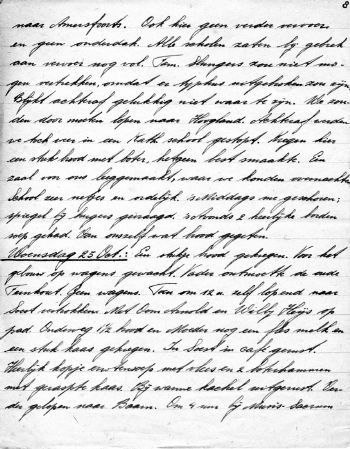 8
naar Amersfoort. Ook hier geen verder vervoer
en geen onderdak. Alle scholen zaten bij gebrek
aan vervoer nog vol. Fam. Slengers zou niet mo-
gen vertrekken, omdat er typhus uitgebroken zou zijn.
Blijkt achteraf gelukkig niet waar te zijn. We zou-
den door moeten lopen naar Hoogland. Achteraf werden
we toch weer in een Kath. school gestopt. Kregen hier
een stuk brood met boter, hetgeen best smaakte. Een
zaal voor ons leeggemaakt, waar we konden overnachten.
School zeer netjes en ordelijk. 's Middags me geschoren;
spiegel bij burgers gevraagd. 's Avonds 2 heerlijke borden
soep gehad. Van onszelf wat brood gegeten.
Woensdag 25 Oct.: Een stukje brood gekregen. Voor het
gebouw op wagens gewacht. Vader ontmoette de oude
Geen wagens. Toen om 12 u. zelf lopend naar
Soest vertrokken. Met Oom Arnold en Willy Heijs op
pad. Onderweg 1½ brood en Moeder nog een fles melk en
een stuk kaas gekregen. In Soest in café gerust.
Heerlijk kopje erwtensoep met vlees en 2 boterhammen
met geraspte kaas. Bij warme kachel uitgerust. Ver-
der gelopen naar Baarn. Om 4 uur bij Musis Sacrum